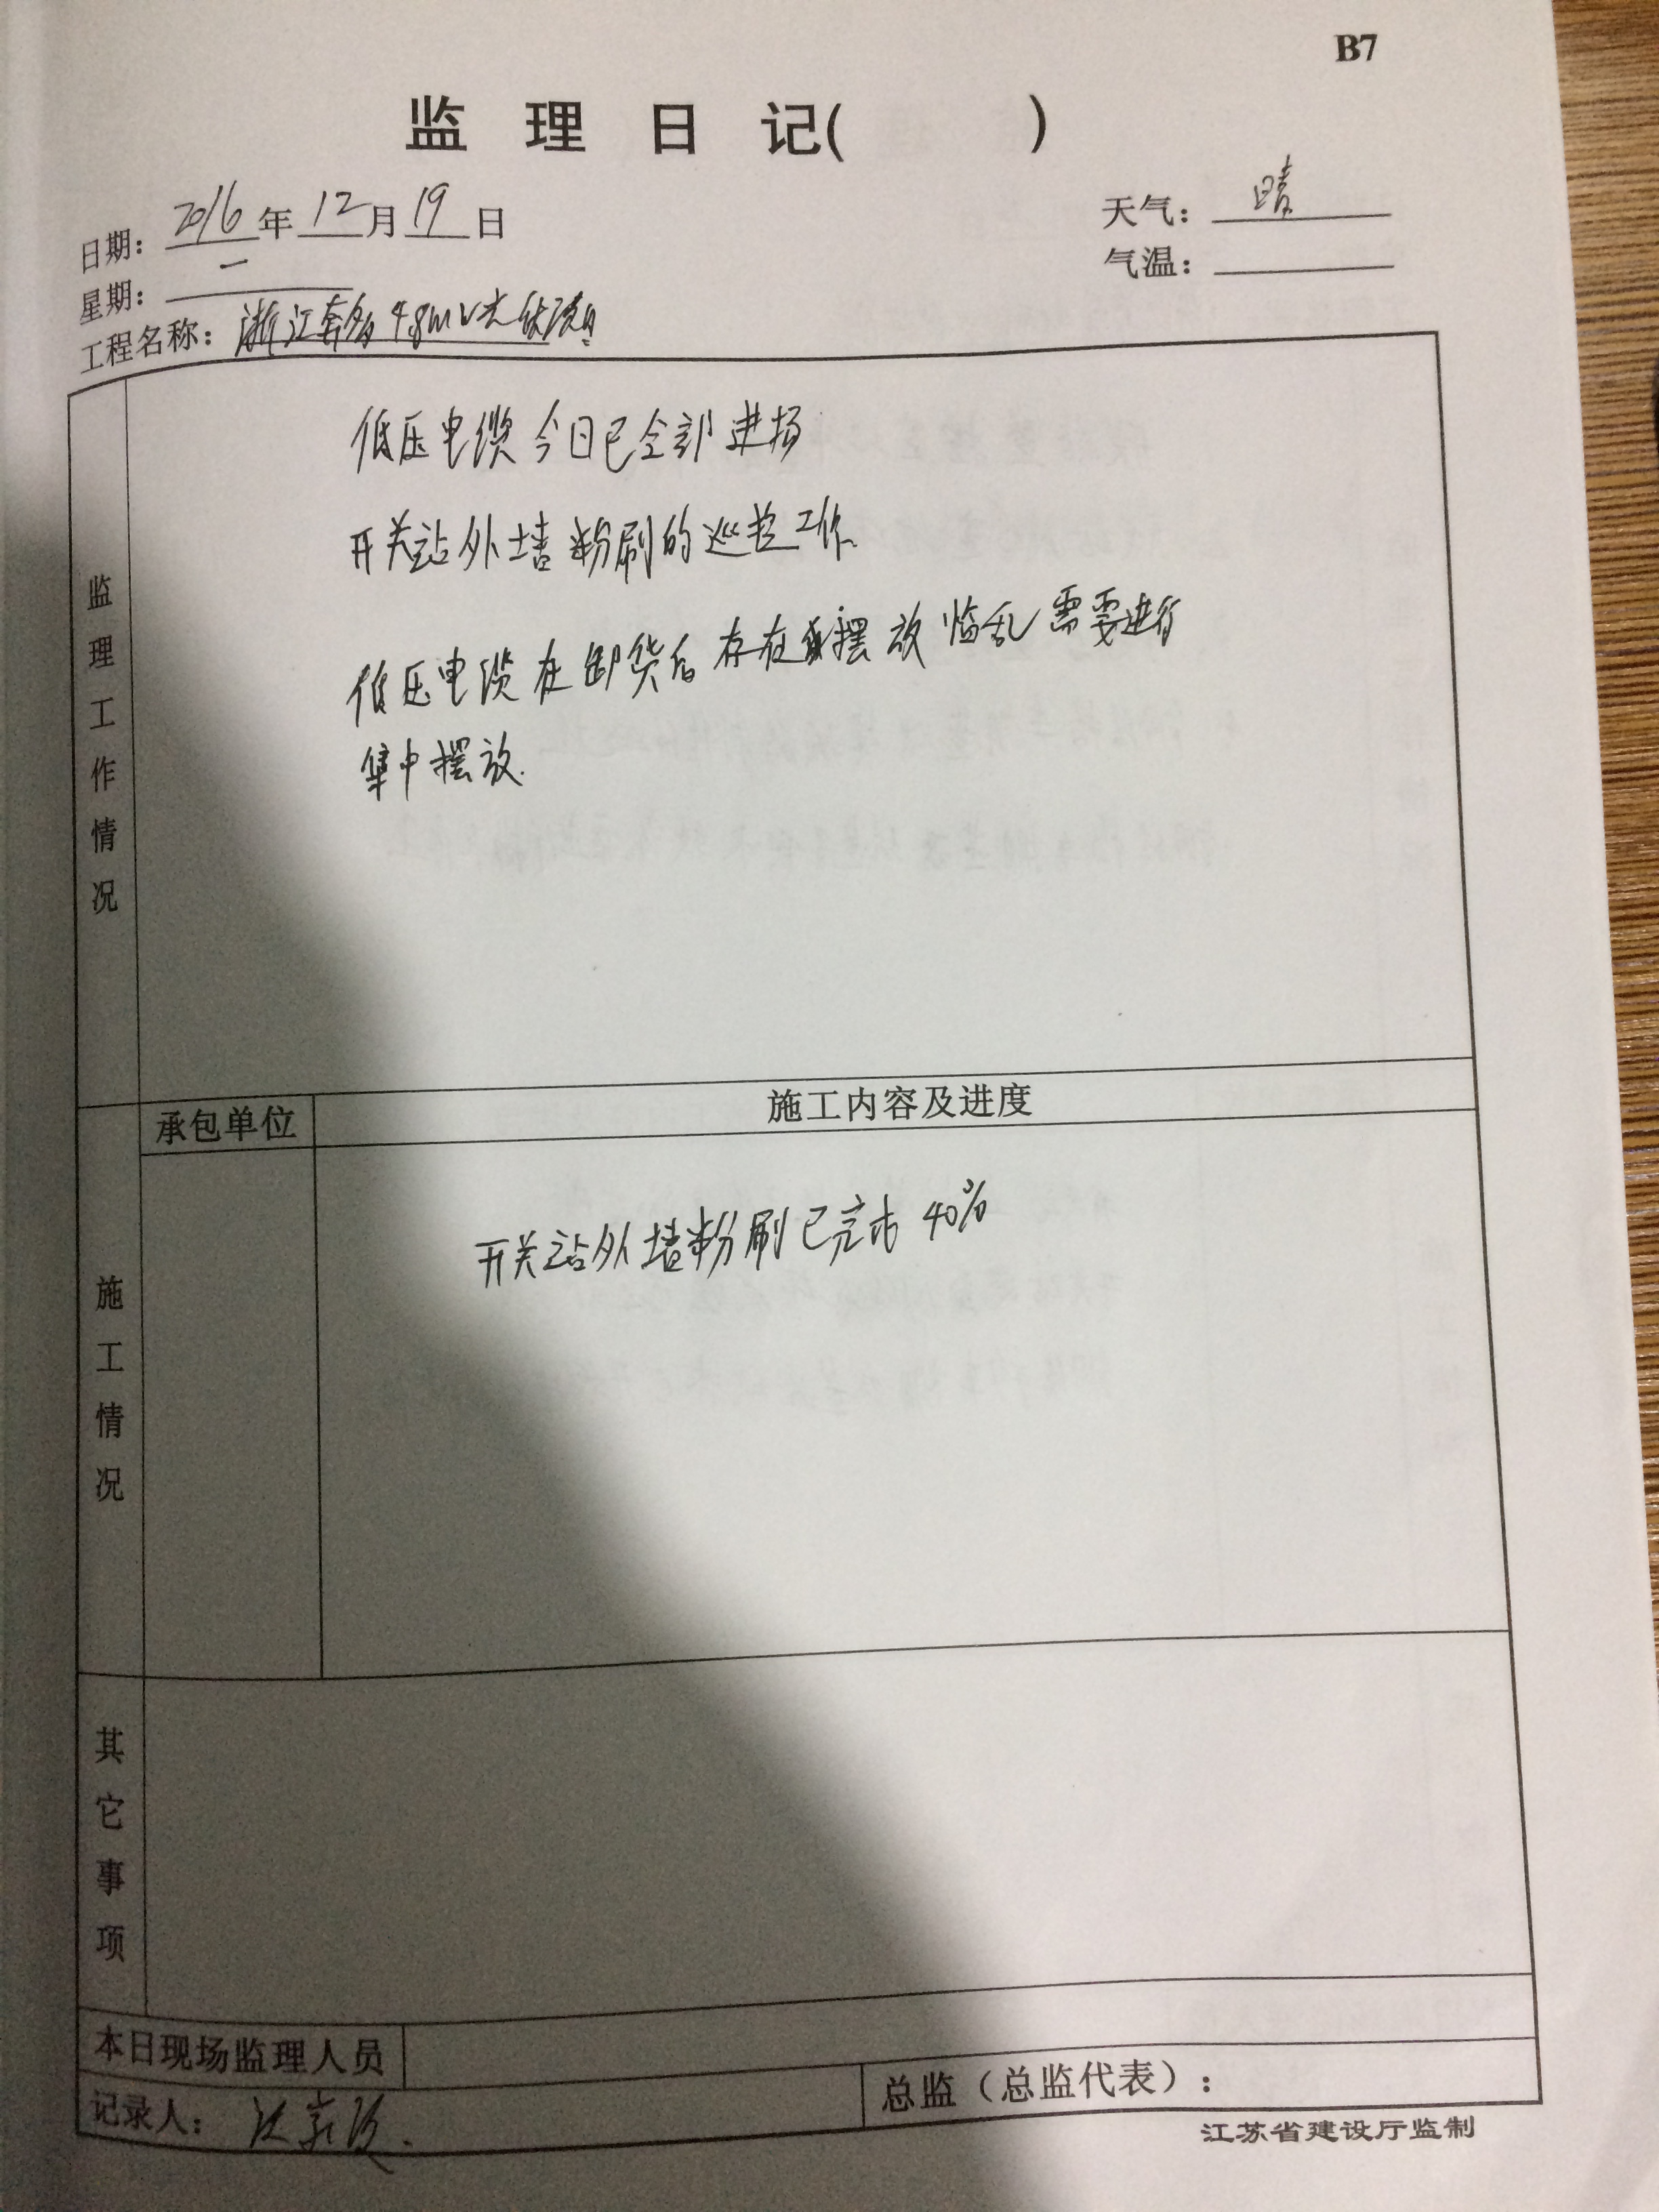 B7
监 理 日 记( )
日期：2016年12月19日
天气：晴
星期：一
气温：
工程名称：浙江套多4.8MW光伏项目
监理工作情况
低压电缆今日已全部进场
开关站外墙粉刷的巡检工作.
低压电缆在卸货后存在摆放 乱需要进行
集中摆放.
施工情况
承包单位
施工内容及进度
开关站外墙粉刷已完成40%
其它事项
本日现场监理人员
记录人：
总监（总监代表）：
江苏省建设厅监制